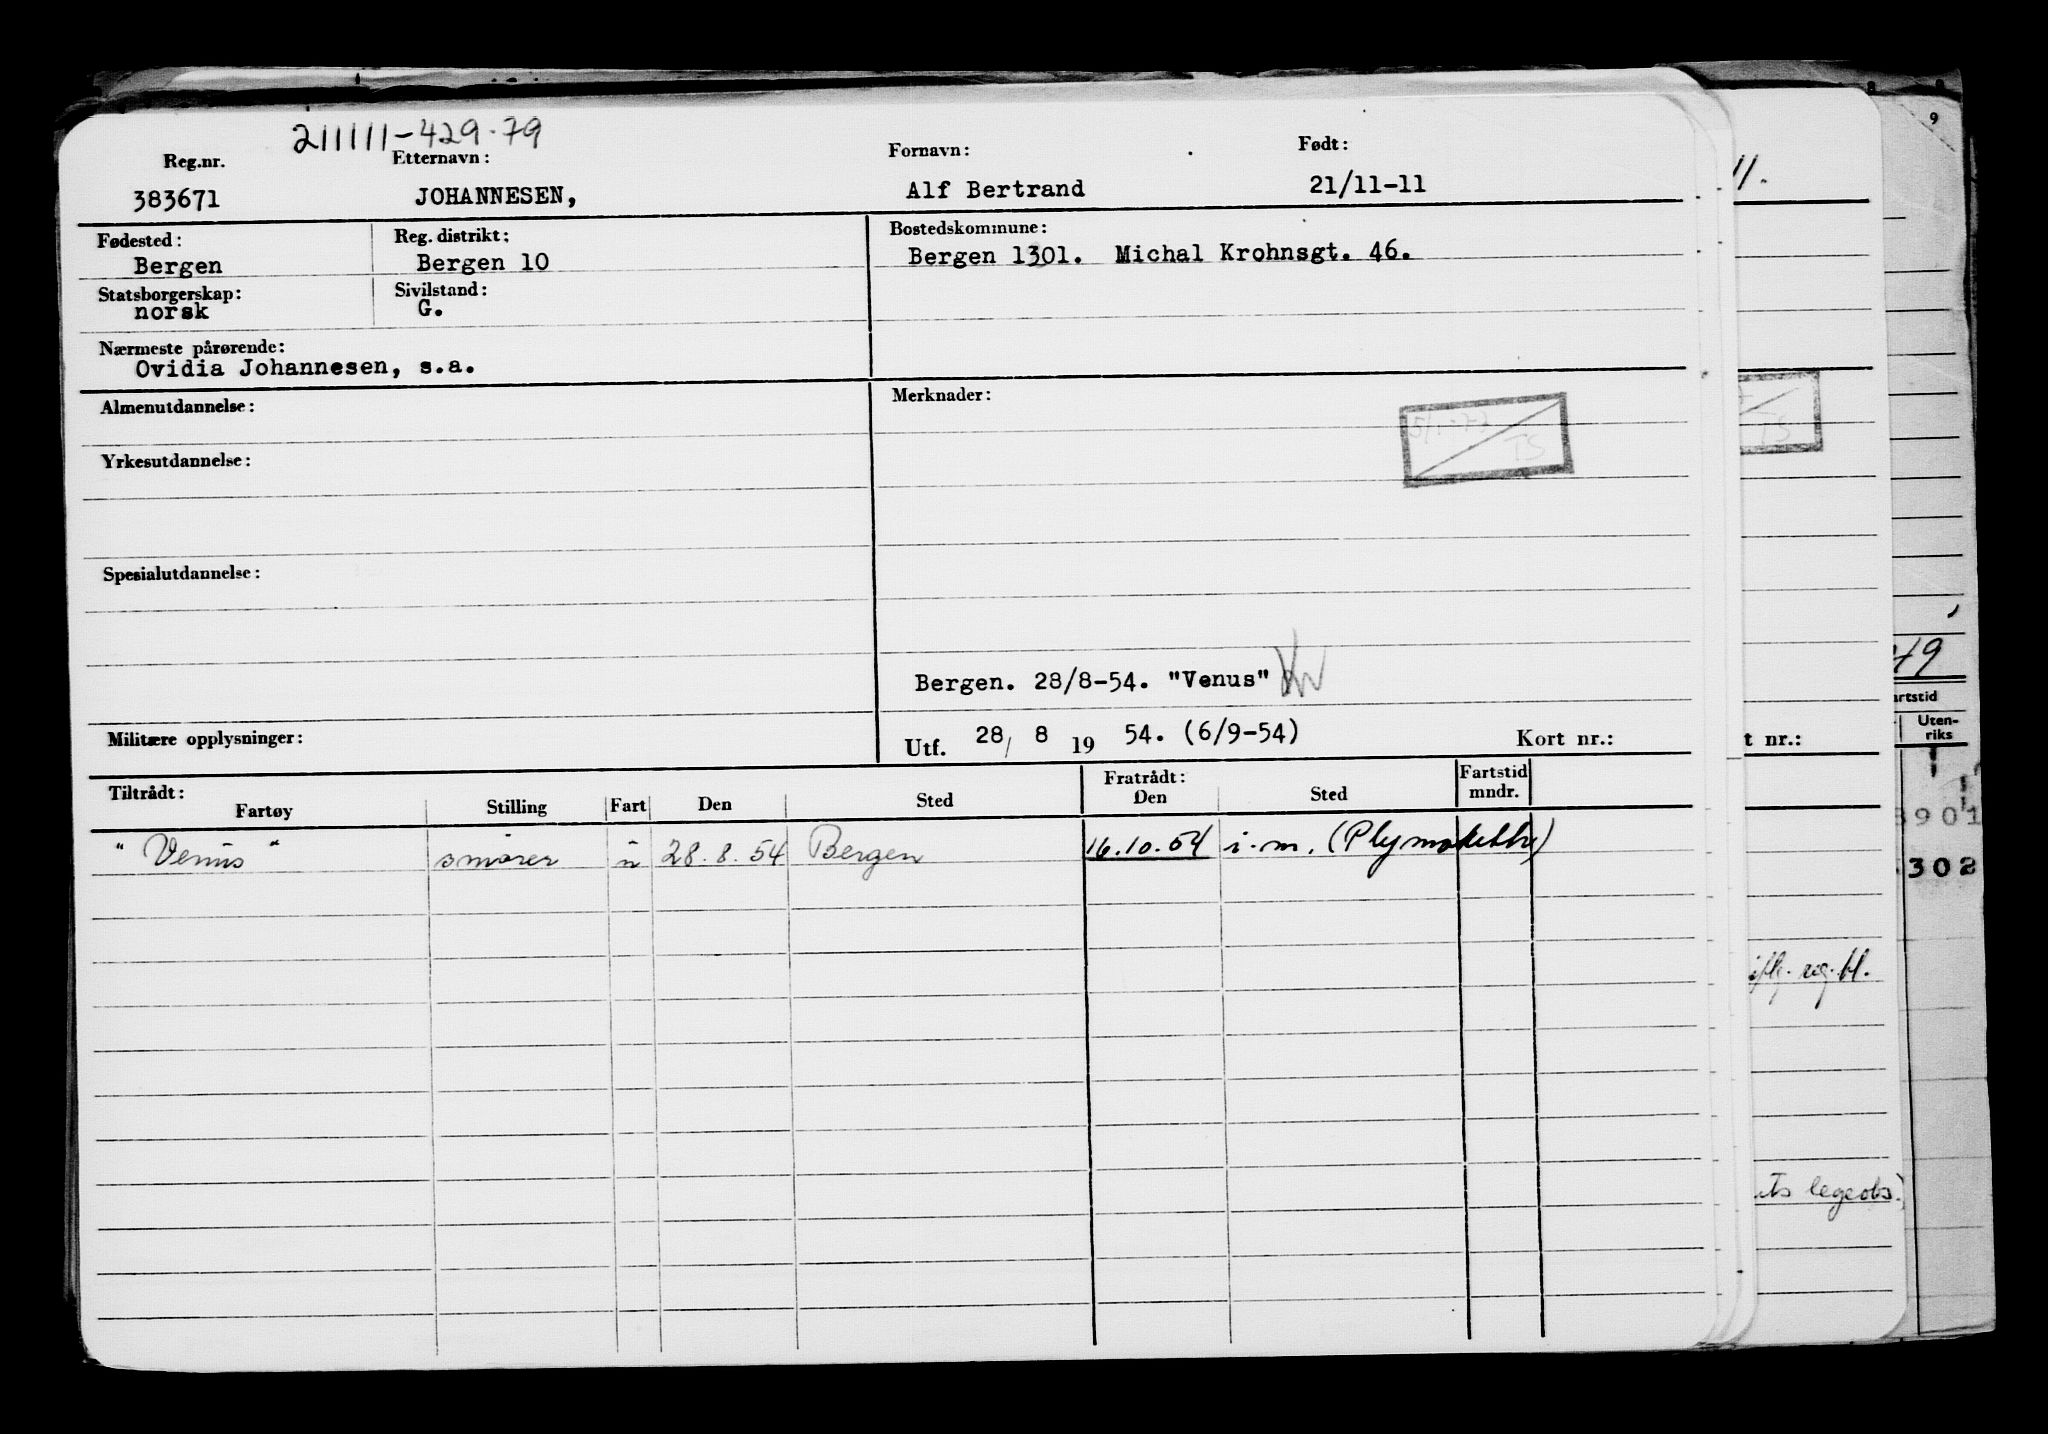 211111-429.79
Reg.nr. Etternavn: Fornavn: Født:
383671 JOHANNESEN, Alf Bertrand 21/11-11
Fødested: Reg. distrikt: Bostedskommune:
Bergen Bergen 10 Bergen 1301. Michal Krohnsgt. 46.
Statsborgerskap: Sivilstand:
norsk G.
Nærmeste pårørende:
Ovidia Johannesen, s.a.
Almenutdannelse: Merknader:
TS
TS
Yrkesutdannelse:
Spesialutdannelse:
Bergen. 28/8-54. "Venus"
Militære opplysninger: Utf. 28/ 8 19 54. (6/9-54) Kort nr.:
Tiltrådt: Fratrådt: Fartstid
Fartøy Stilling Fart Den Sted Den Sted mndr.
"Venus" smører u 28.8.54 Bergen 16.10.54 i.m.
9
11.
49
artstid
Uten-
riks
t nr.:
901
302
reg.bl.
ts legeobs.)